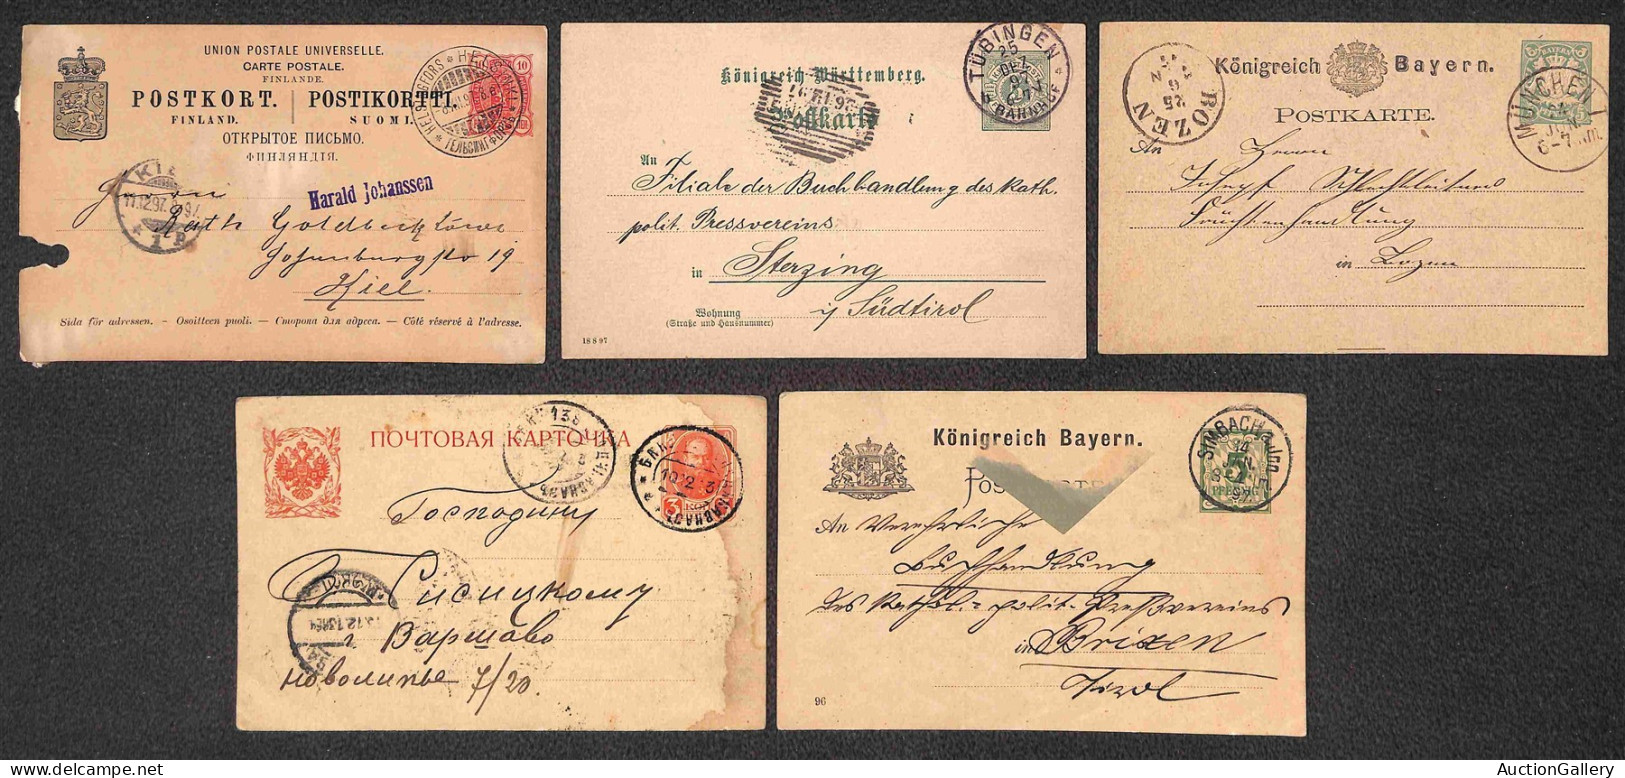 UNION POSTALE UNIVERSELLE.
CARTE POSTALE.
FINLANDE.
POSTKORT. | POSTIKORTTI.
FINLAND. SUOMI.
ОТКРЫТОЕ ПИСЬМО.
ФИНЛЯНДІЯ.
10
HELSINGFORS * HELSINKI
* ГЕЛЬСИНГФОРСЪ *
Harald Johanssen
Herrn
11.12.97.
* 1 P
Johannburgstr 19
Kiel.
Sida för adressen. - Osoitteen puoli. - Сторона для адреса. - Côté réservé à l'adresse.
Königreich Württemberg.
Postkarte
TÜBINGEN
25
DEZ
BAHNHOF
An
Filiale der Buchhandlung des Kath.
polit. Pressvereins
in Sterzing
Wohnung
(Straße und Hausnummer)
i/ Südtirol
18 8 97
Königreich Bayern.
POSTKARTE.
BOZEN
25
6
MÜNCHEN I
6-7
BAYERN
An Herrn
Früchtenhandlung
in Bozen
ПОЧТОВАЯ КАРТОЧКА
3 КОП
138
10 12 13
Господину
Гисицкому
г. Варшаво
Новолипье 7/20.
Königreich Bayern.
POSTKARTE
SIMBACH a. Inn
14
97
5
PFENNIG
An Verehrliche
Buchhandlung
des Kathol.= polit. Preßvereins
in Brixen
Tirol
96
AuctionGallery